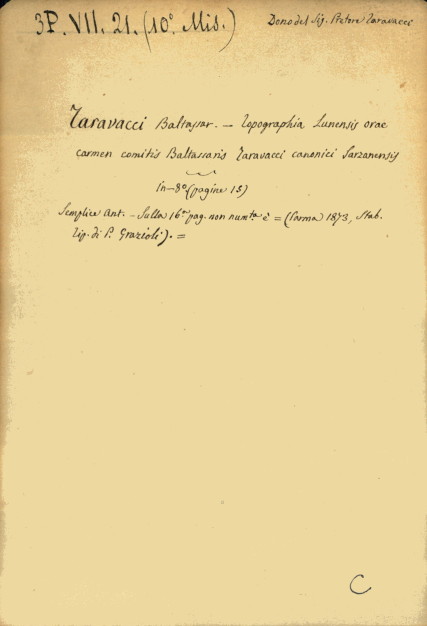 3P. VII. 21. (10° Mis.)
Dono del Sig. Pretore Zaravacci
Zaravacci Baltassar. — Topographia Lunensis orae
carmen comitis Baltassaris Zaravacci canonici Sarzanensis
In-8° (pagine 15)
Semplice Ant. - Sulla 16ª pag. non numta è = (Parma 1873, Stab.
Tip. di P. Grazioli). =
C